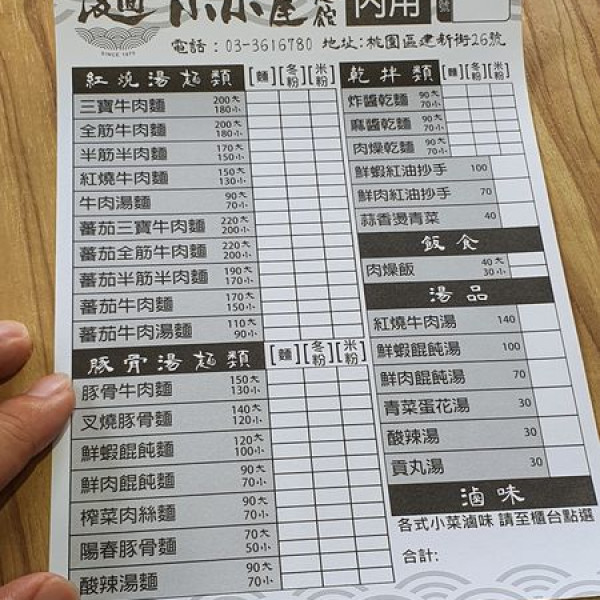 內用
SINCE 1975
電話：03-3616780 地址：桃園區建新街26號
紅燒湯麵類 [麵] [冬粉] [米粉]
三寶牛肉麵 200大 180小
全筋牛肉麵 200大 180小
半筋半肉麵 170大 150小
紅燒牛肉麵 150大 130小
牛肉湯麵 90大 70小
蕃茄三寶牛肉麵 220大 200小
蕃茄全筋牛肉麵 220大 200小
蕃茄半筋半肉麵 190大 170小
蕃茄牛肉麵 170大 150小
蕃茄牛肉湯麵 110大 90小
豚骨湯麵類 [麵] [冬粉] [米粉]
豚骨牛肉麵 150大 130小
叉燒豚骨麵 140大 120小
鮮蝦餛飩麵 120大 100小
鮮肉餛飩麵 90大 70小
榨菜肉絲麵 90大 70小
陽春豚骨麵 70大 50小
酸辣湯麵 90大 70小
乾拌類 [麵] [冬粉] [米粉]
炸醬乾麵 90大 70小
麻醬乾麵 90大 70小
肉燥乾麵 90大 70小
鮮蝦紅油抄手 100
鮮肉紅油抄手 70
蒜香燙青菜 40
飯食
肉燥飯 40大 30小
湯品
紅燒牛肉湯 140
鮮蝦餛飩湯 100
鮮肉餛飩湯 70
青菜蛋花湯 30
酸辣湯 30
貢丸湯 30
滷味
各式小菜滷味 請至櫃台點選
合計：